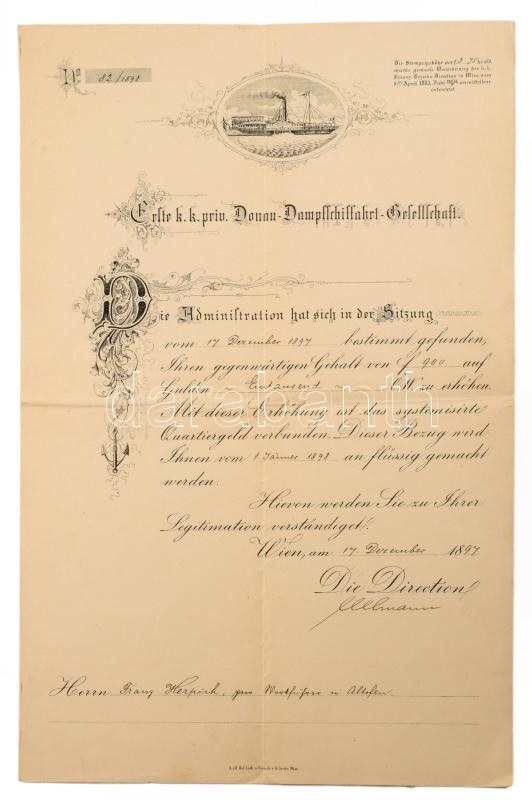 No 82/1898
Die Stempelgebühr per
wurde gemäss Verordnung der k.k.
Finanz-Bezirks-Direktion in Wien vom
April 1883, Zahl unmittelbar
entrichtet
Erste k.k. priv. Donau-Dampfschiffahrt-Gesellschaft.
Die Administration hat sich in der Sitzung
vom 17 Dezember 1897 bestimmt gefunden,
Ihren gegenwärtigen Gehalt von fl 900 auf
Gulden – Eintausend – Ö.W. zu erhöhen.
darabanth
Mit dieser Erhöhung ist das systemisirte
Quartiergeld verbunden. Dieser Bezug wird
Ihnen vom 1 Jänner 1898 an flüssig gemacht
werden.
Hievon werden Sie zu Ihrer
Legitimation verständiget.
Wien, am 17 Dezember 1897
Die Direction
Ullmann
Herrn Franz Herpich, Werkführer in Altofen